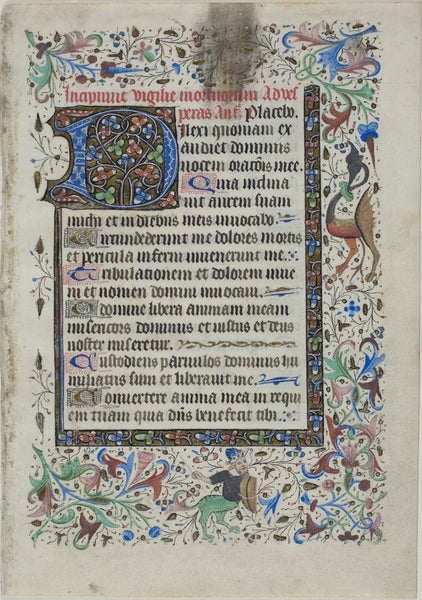 Incipiunt vigilie mortuorum Ad ves
peras Ant. Placebo.
Dilexi quoniam ex
audiet dominus
vocem oracōis mee.
Quia inclina
uit aurem suam
michi et in diebus meis inuocabo.
Circumdederunt me dolores mortis
et pericula inferni inuenerunt me.
Tribulationem et dolorem inue
ni et nomen domini inuocaui.
O domine libera animam meam
misericors dominus et iustus et deus
noster miseretur.
Custodiens paruulos dominus hu
miliatus sum et liberauit me.
Conuertere anima mea in requi
em tuam quia dn̄s benefecit tibi.